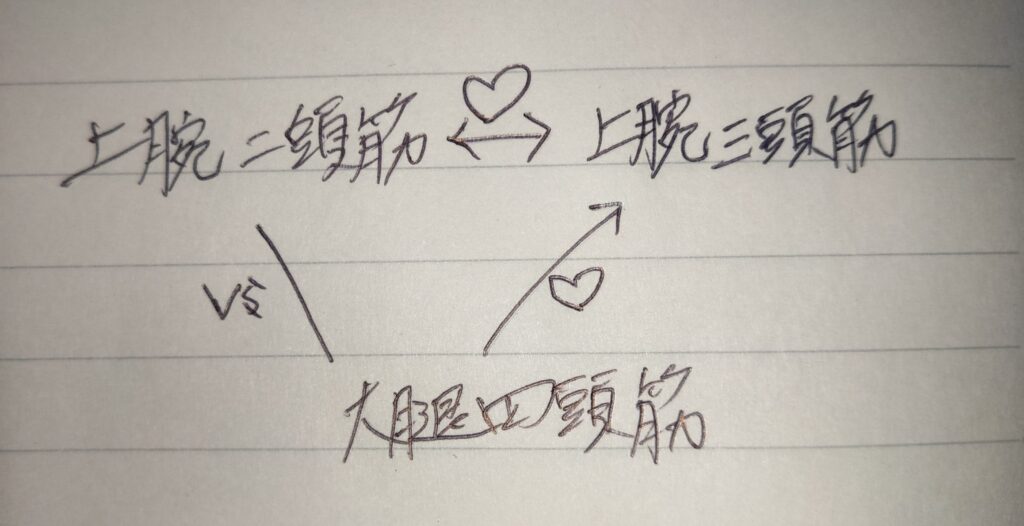 上腕二頭筋 ♡ ↔ 上腕三頭筋
vs ♡
大腿四頭筋